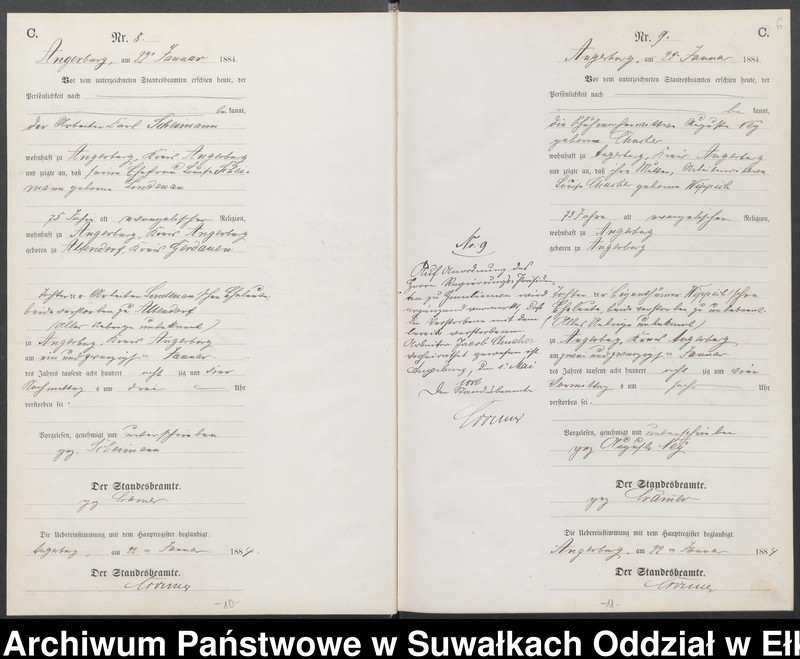 C.
Nr. 8.
Angerburg, am 22n Januar 1884.
Vor dem unterzeichneten Standesbeamten erschien heute, der
Persönlichkeit nach
be kannt,
der Arbeiter Karl Scheimann
wohnhaft zu Angerburg, Kreis Angerburg
und zeigte an, daß seine Ehefrau Louise Schei-
mann geborne Lindenau
75 Jahre alt evangelischer Religion,
wohnhaft zu Angerburg, Kreis Angerburg
geboren zu Altendorf, Kreis Gerdauen
Tochter der Arbeiter
beide verstorben zu Altendorf
(Alles Uebrige unbekannt)
zu Angerburg, Kreis Angerburg
am ein und zwanzigsten Januar
des Jahres tausend acht hundert acht zig und vier
Nachmittags um drei Uhr
verstorben sei.
Vorgelesen, genehmigt und unterschrieben
gez. Scheimann
Der Standesbeamte.
gez Cramer
Die Uebereinstimmung mit dem Hauptregister beglaubigt.
Angerburg, am 22n Januar 1884.
Der Standesbeamte.
Cramer
-10-
6
Nr. 9.
C.
Angerburg, am 22n Januar 1884.
Vor dem unterzeichneten Standesbeamten erschien heute, der
Persönlichkeit nach
be kannt,
die Auguste Ney
geborne
wohnhaft zu Angerburg, Kreis Angerburg
und zeigte an, daß ihre Mutter,
Louise geborne Wippich
73 Jahre alt evangelischer Religion,
wohnhaft zu Angerburg
geboren zu Angerburg
Tochter der Eigenthümer Wippich'schen
Eheleute beide verstorben zu unbekannt
(Alles Uebrige unbekannt)
zu Angerburg, Kreis Angerburg
am zwei und zwanzigsten Januar
des Jahres tausend acht hundert acht zig und vier
Vormittags um sechs Uhr
verstorben sei.
Vorgelesen, genehmigt und unterschrieben
gez Auguste Ney
Der Standesbeamte.
gez Cramer
Die Uebereinstimmung mit dem Hauptregister beglaubigt.
Angerburg, am 22n Januar 1884
Der Standesbeamte.
Cramer
-11-
No. 9
Auf Anordnung des
Herrn Regierungs-Präsiden-
ten zu Gumbinnen wird
ergänzend vermerkt, daß
die Verstorbene mit dem
bereits verstorbenen
Arbeiter Jacob
verheirathet gewesen ist.
Angerburg, den 1. Mai
Der Standesbeamte
Cramer
Archiwum Państwowe w Suwałkach Oddział w Ełk